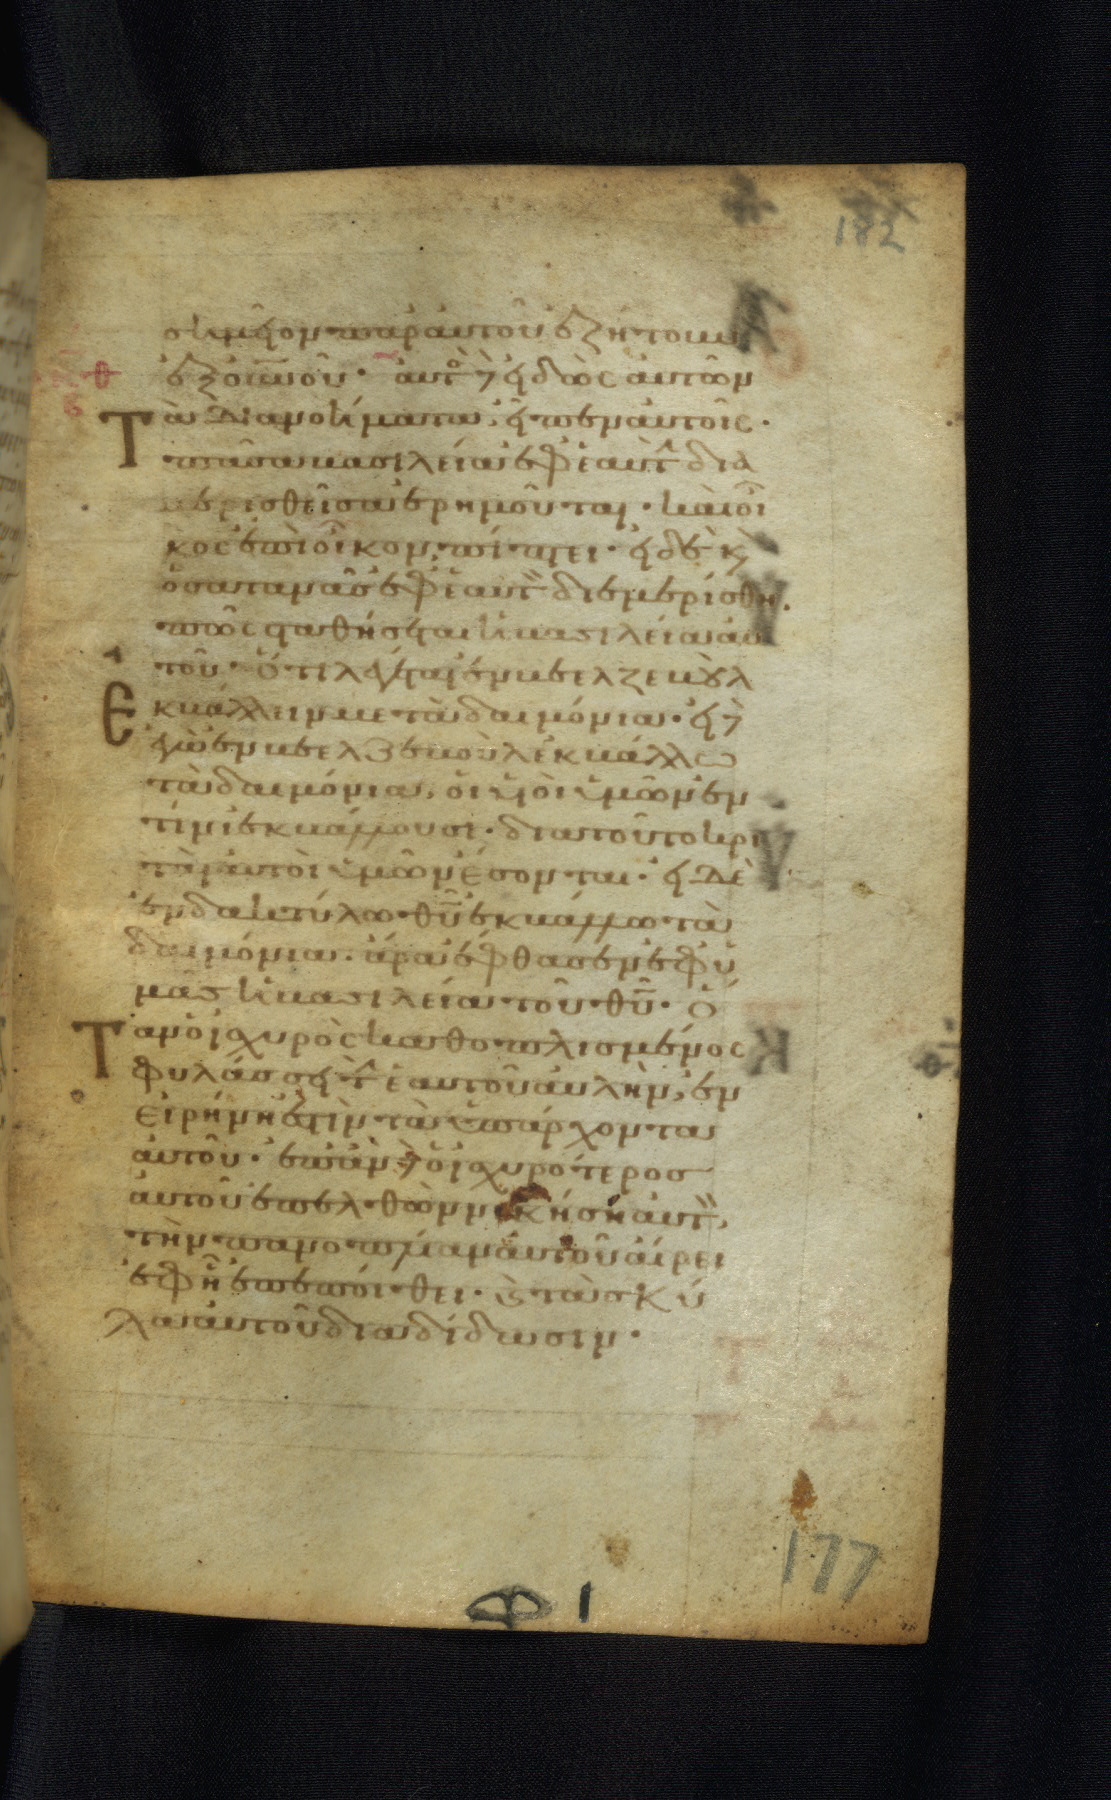 182
σημεῖον παρ αὐτοῦ ἐζήτουν
ἐξ οὐνοῦ· αὐτὸς δὲ εἰδὼς αὐτῶν
τὰ διανοήματα, εἶπεν αὐτοῖς·
πᾶσα βασιλεία ἐφ ἑαυτὴν δια
μερισθεῖσα ἐρημοῦται· καὶ οἶ
κος ἐπὶ οἶκον, πίπτει· εἰ δὲ καὶ
ὁ σατανᾶς ἐφ ἑαυτὸν διεμερίσθη.
πῶς σταθήσεται ἡ βασιλεία αὐ
τοῦ· ὅτι λέγεται ἐν βεελζεβοὺλ
ἐκβάλλειν με τὰ δαιμόνια· εἰ δὲ
ἐγὼ ἐν βεελζεβοὺλ ἐκβάλλω
τὰ δαιμόνια, οἱ υἱοὶ ὑμῶν ἐν
τίνι ἐκβάλλουσι· διατοῦτο κρι
ταὶ αὐτοὶ ὑμῶν ἔσονται· εἰ δὲ
ἐν δακτύλω θυ ἐκβάλλω τὰ
δαιμόνια. ἄρα ἔφθασεν ἐφ ὑ
μᾶς ἡ βασιλεία τοῦ θυ· ὅ
ταν ὁ ἰσχυρὸς καθοπλισμένος
φυλάσσει τὴν ἑαυτοῦ αὐλὴν, ἐν
εἰρήνη ἐστὶν τὰ ὑπάρχοντα
αὐτοῦ· ἐπὰν δὲ ὁ ἰσχυρότερος
αὐτοῦ ἐπελθὼν νικήση αὐτὸν,
τὴν πανοπλίαν αὐτοῦ αἴρει
ἐφ ἧ ἐπεποίθει· καὶ τὰ σκύ
λα αὐτοῦ διαδίδωσιν·
177